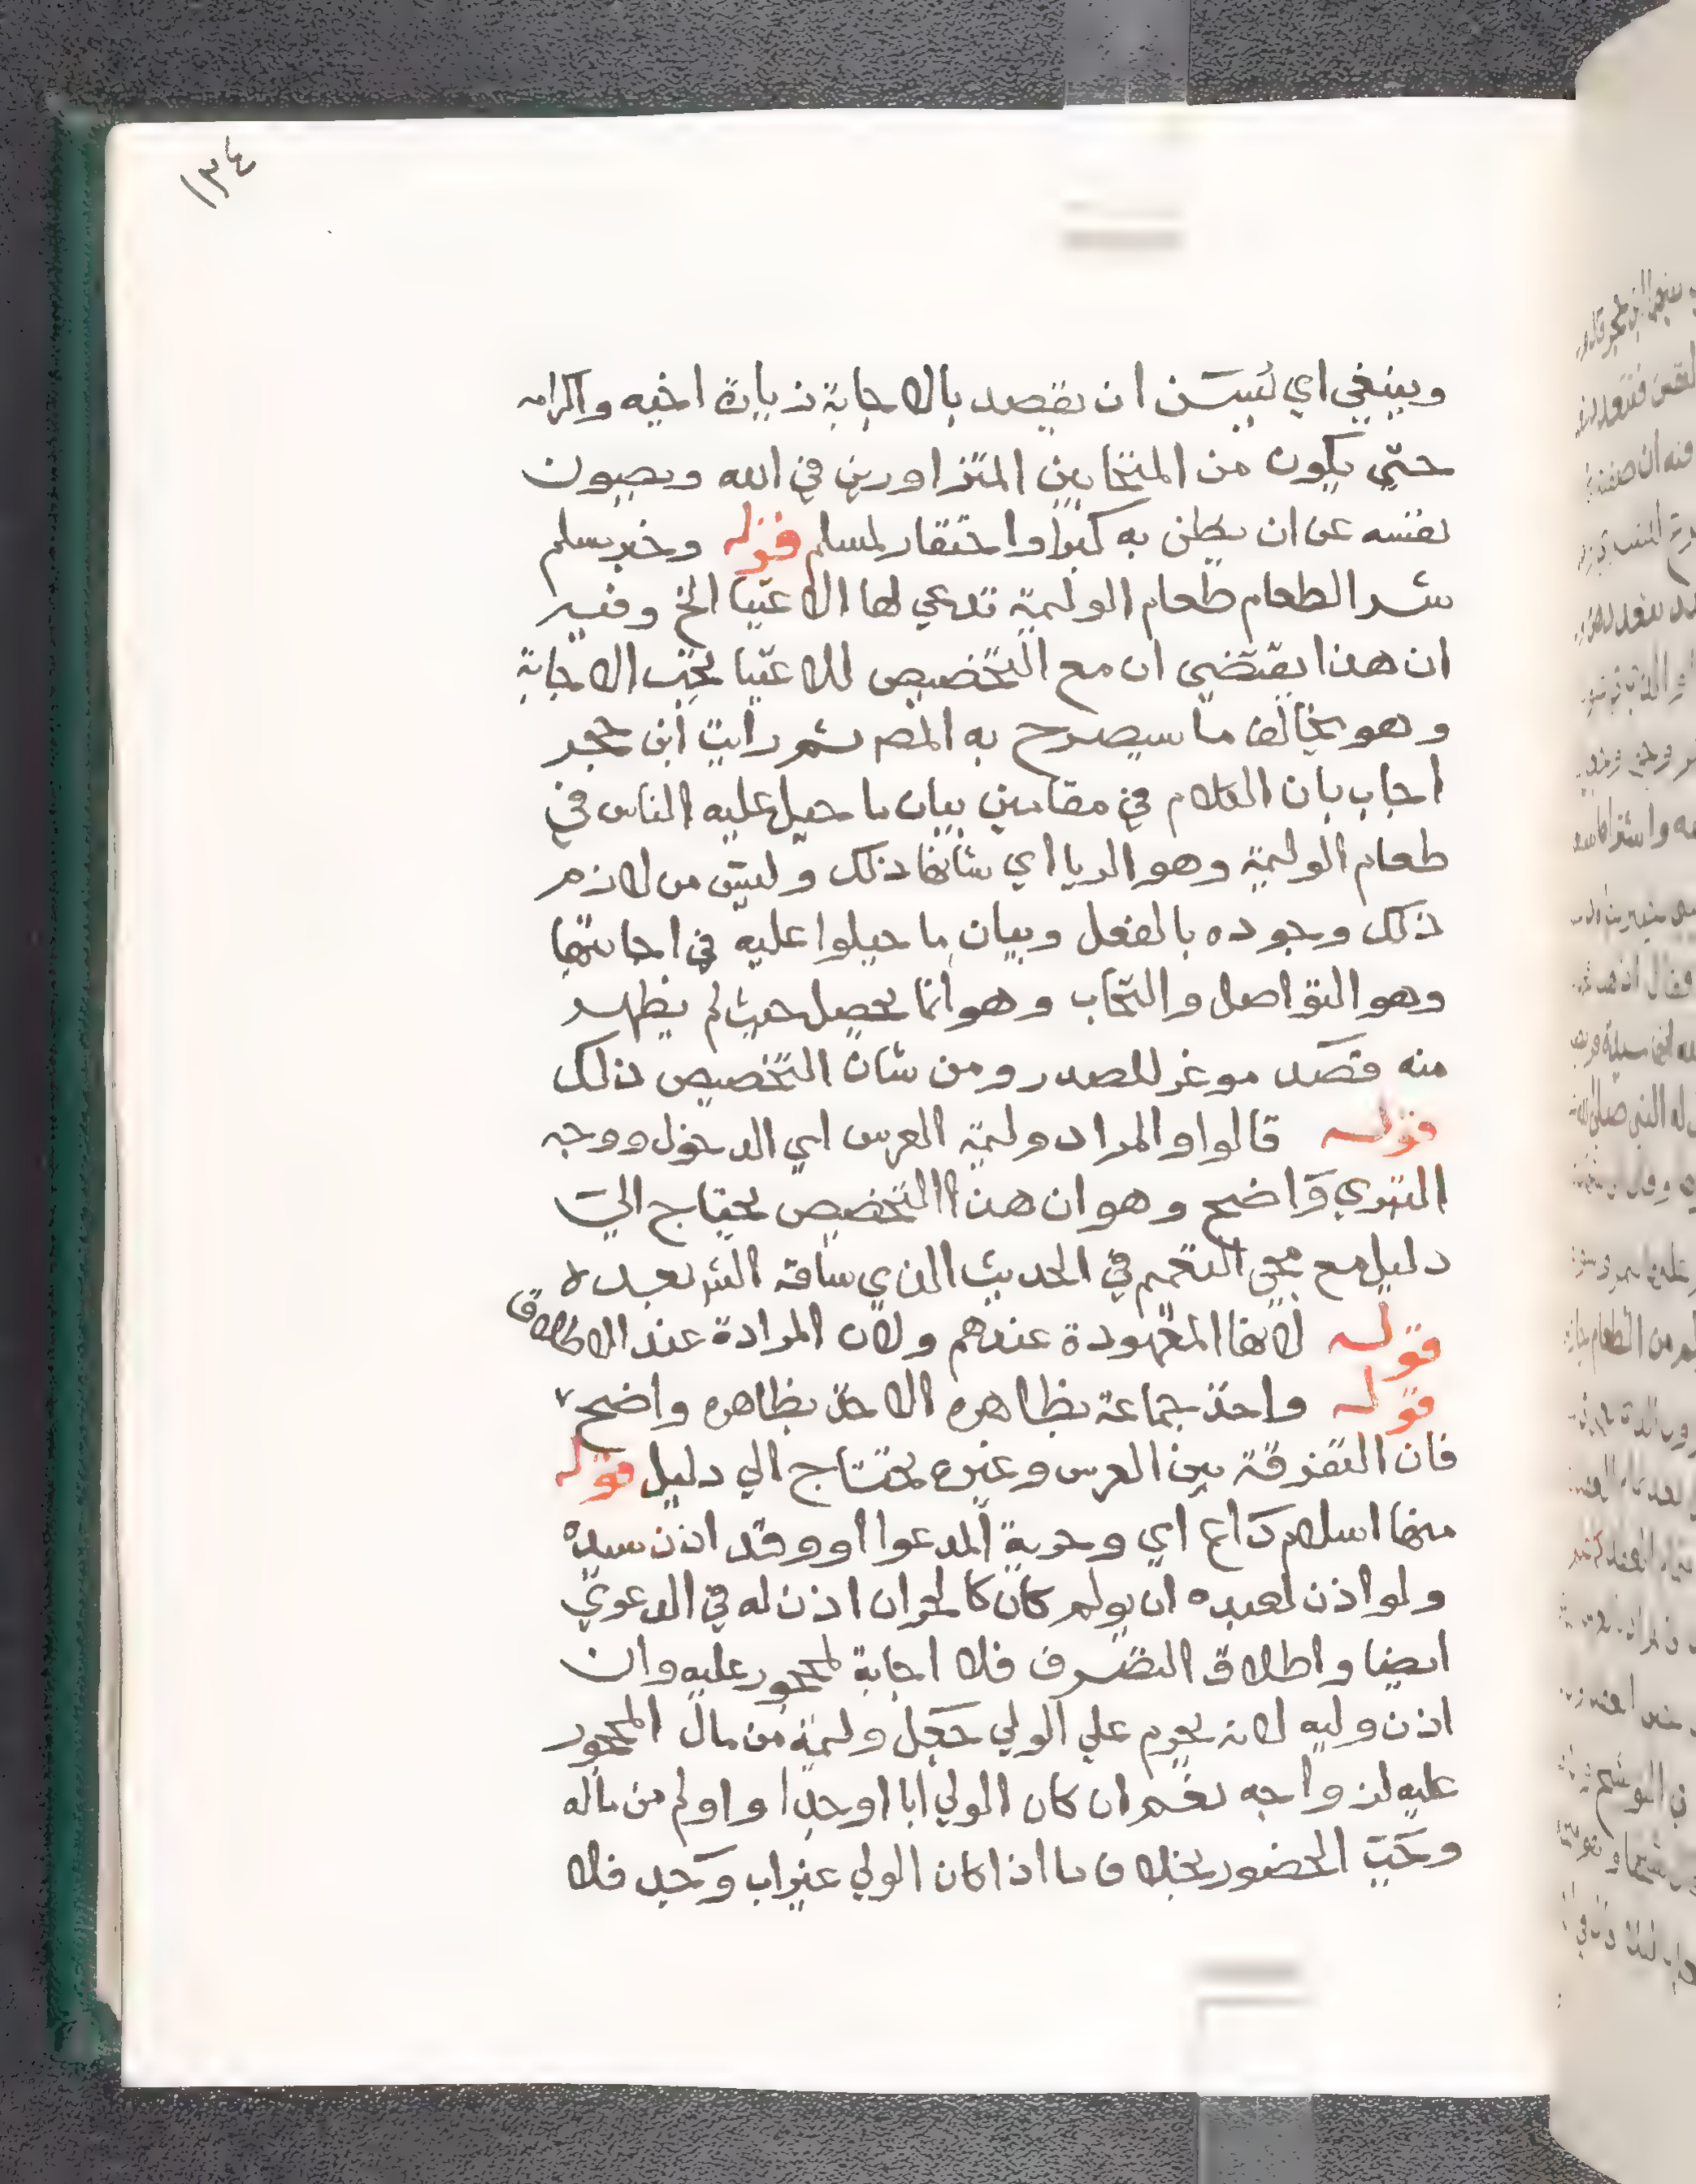 ١٣٤
وينبغي اي يسن ان يقصد بالاجابة زيارة اخيه واكرامه
حتي يكون من المتحابين المتزاورين في الله ويصون
نفسه عن ان يظن به كبرا واحتقار لمسلم قوله وخبر مسلم
شر الطعام طعام الوليمة تدعي لها الاغنيا الخ وفيه
ان هذا يقتضي ان مع التخصيص للاغنيا يجب الاجابة
وهو يخالف ما سيصرح به المص ثم رايت ابن حجر
اجاب بان الكلام في مقامين بيان ما جبل عليه الناس في
طعام الوليمة وهو الريا اي شانها ذلك وليس من لازم
ذلك وجوده بالفعل وبيان ما جبلوا عليه في اجابتها
وهو التواصل والتحاب وهو انما يحصل حيث لم يظهر
منه قصد موغر للصدر ومن شان التخصيص ذلك
قوله قالوا والمراد وليمة العرس اي الدخول ووجه
التبري واضح وهو ان هذا التخصيص يحتاج الي
دليل مع مجي التعميم في الحديث الذي ساقه الش بعده
قوله لانها المعهودة عندهم ولان المرادة عند الاطلاق
قوله واخذ جماعة بظاهره الاخذ بظاهره واضح
فان التفرقة بين العرس وغيره يحتاج الي دليل قوله
منها اسلام داع اي وحرية المدعوا او وقد اذن سيده
ولو اذن لعبده ان يولم كان كالحر ان اذن له في الدعوي
ايضا واطلاق التصرف فلا اجابة لمحجور عليه وان
اذن وليه لانه يحرم علي الولي جعل وليمة من مال المحجور
عليه لزواجه نعم ان كان الولي ابا او جدا واولم من ماله
وجب الحضور بخلاف ما اذا كان الولي غير اب وجد فلا